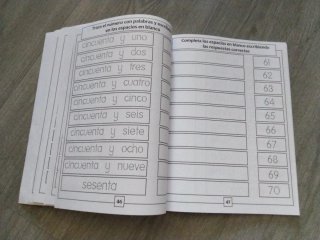 Trace el número con palabras y escriba
en los espacios en blanco
cincuenta y uno
cincuenta y dos
cincuenta y tres
cincuenta y cuatro
cincuenta y cinco
cincuenta y seis
cincuenta y siete
cincuenta y ocho
cincuenta y nueve
sesenta
46
Completa los espacios en blanco escribiendo
las respuestas correctas
61
62
63
64
65
66
67
68
69
70
47